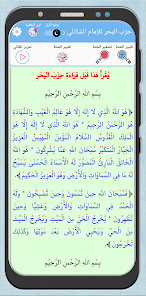 حزب البحر للإمام الشاذلي
يُقْرَأُ هَذَا قَبْلَ قِرَاءَةِ حِزْبِ البَحْرِ
بِسْمِ اللهِ الرَّحْمَنِ الرَّحِيْمِ
﴿ هُوَ اللَّهُ الَّذِي لَا إِلَهَ إِلَّا هُوَ عَالِمُ الْغَيْبِ وَالشَّهَادَةِ
هُوَ الرَّحْمَنُ الرَّحِيمُ * هُوَ اللَّهُ الَّذِي لَا إِلَهَ إِلَّا هُوَ
الْمَلِكُ الْقُدُّوسُ السَّلَامُ الْمُؤْمِنُ الْمُهَيْمِنُ الْعَزِيزُ
الْجَبَّارُ الْمُتَكَبِّرُ سُبْحَانَ اللَّهِ عَمَّا يُشْرِكُونَ * هُوَ
اللَّهُ الْخَالِقُ الْبَارِئُ الْمُصَوِّرُ لَهُ الْأَسْمَاءُ الْحُسْنَى يُسَبِّحُ
لَهُ مَا فِي السَّمَاوَاتِ وَالْأَرْضِ وَهُوَ الْعَزِيزُ الْحَكِيمُ ﴾
﴿ فَسُبْحَانَ اللَّهِ حِينَ تُمْسُونَ وَحِينَ تُصْبِحُونَ * وَلَهُ
الْحَمْدُ فِي السَّمَاوَاتِ وَالْأَرْضِ وَعَشِيًّا وَحِينَ
تُظْهِرُونَ * يُخْرِجُ الْحَيَّ مِنَ الْمَيِّتِ وَيُخْرِجُ الْمَيِّتَ
مِنَ الْحَيِّ وَيُحْيِي الْأَرْضَ بَعْدَ مَوْتِهَا وَكَذَلِكَ
تُخْرَجُونَ ﴾
بِسْمِ اللهِ الرَّحْمَنِ الرَّحِيْمِ